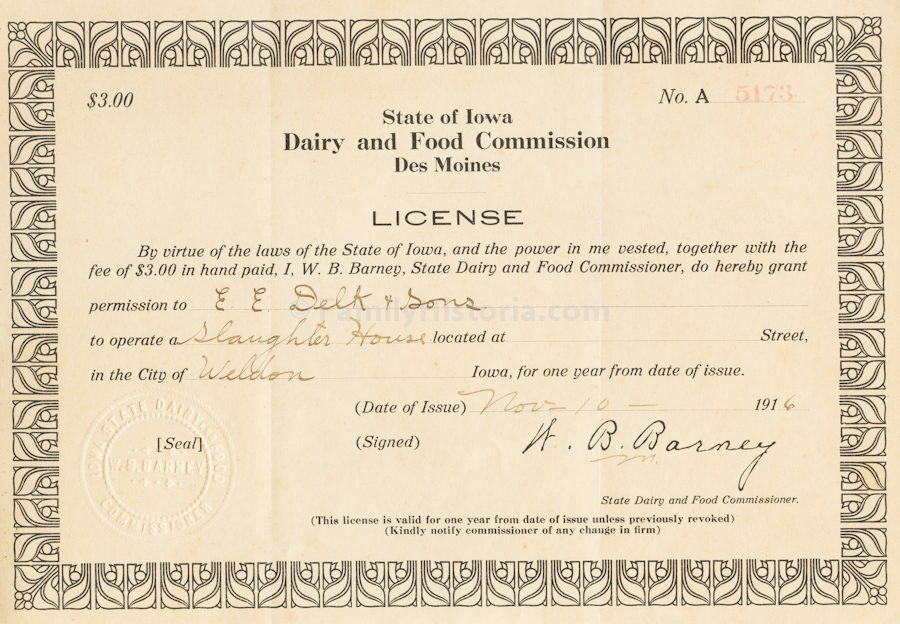 $3.00
No. A 5173
State of Iowa
Dairy and Food Commission
Des Moines
LICENSE
By virtue of the laws of the State of Iowa, and the power in me vested, together with the
fee of $3.00 in hand paid, I, W. B. Barney, State Dairy and Food Commissioner, do hereby grant
permission to E. E. Delk & Sons
© FamilyHistoria.com
to operate a Slaughter House located at Street,
in the City of Weldon Iowa, for one year from date of issue.
(Date of Issue) Nov 10 – 1916
IOWA STATE DAIRY & FOOD
[Seal]
W. B. BARNEY
COMMISSIONER
(Signed) W. B. Barney
State Dairy and Food Commissioner.
(This license is valid for one year from date of issue unless previously revoked)
(Kindly notify commissioner of any change in firm)